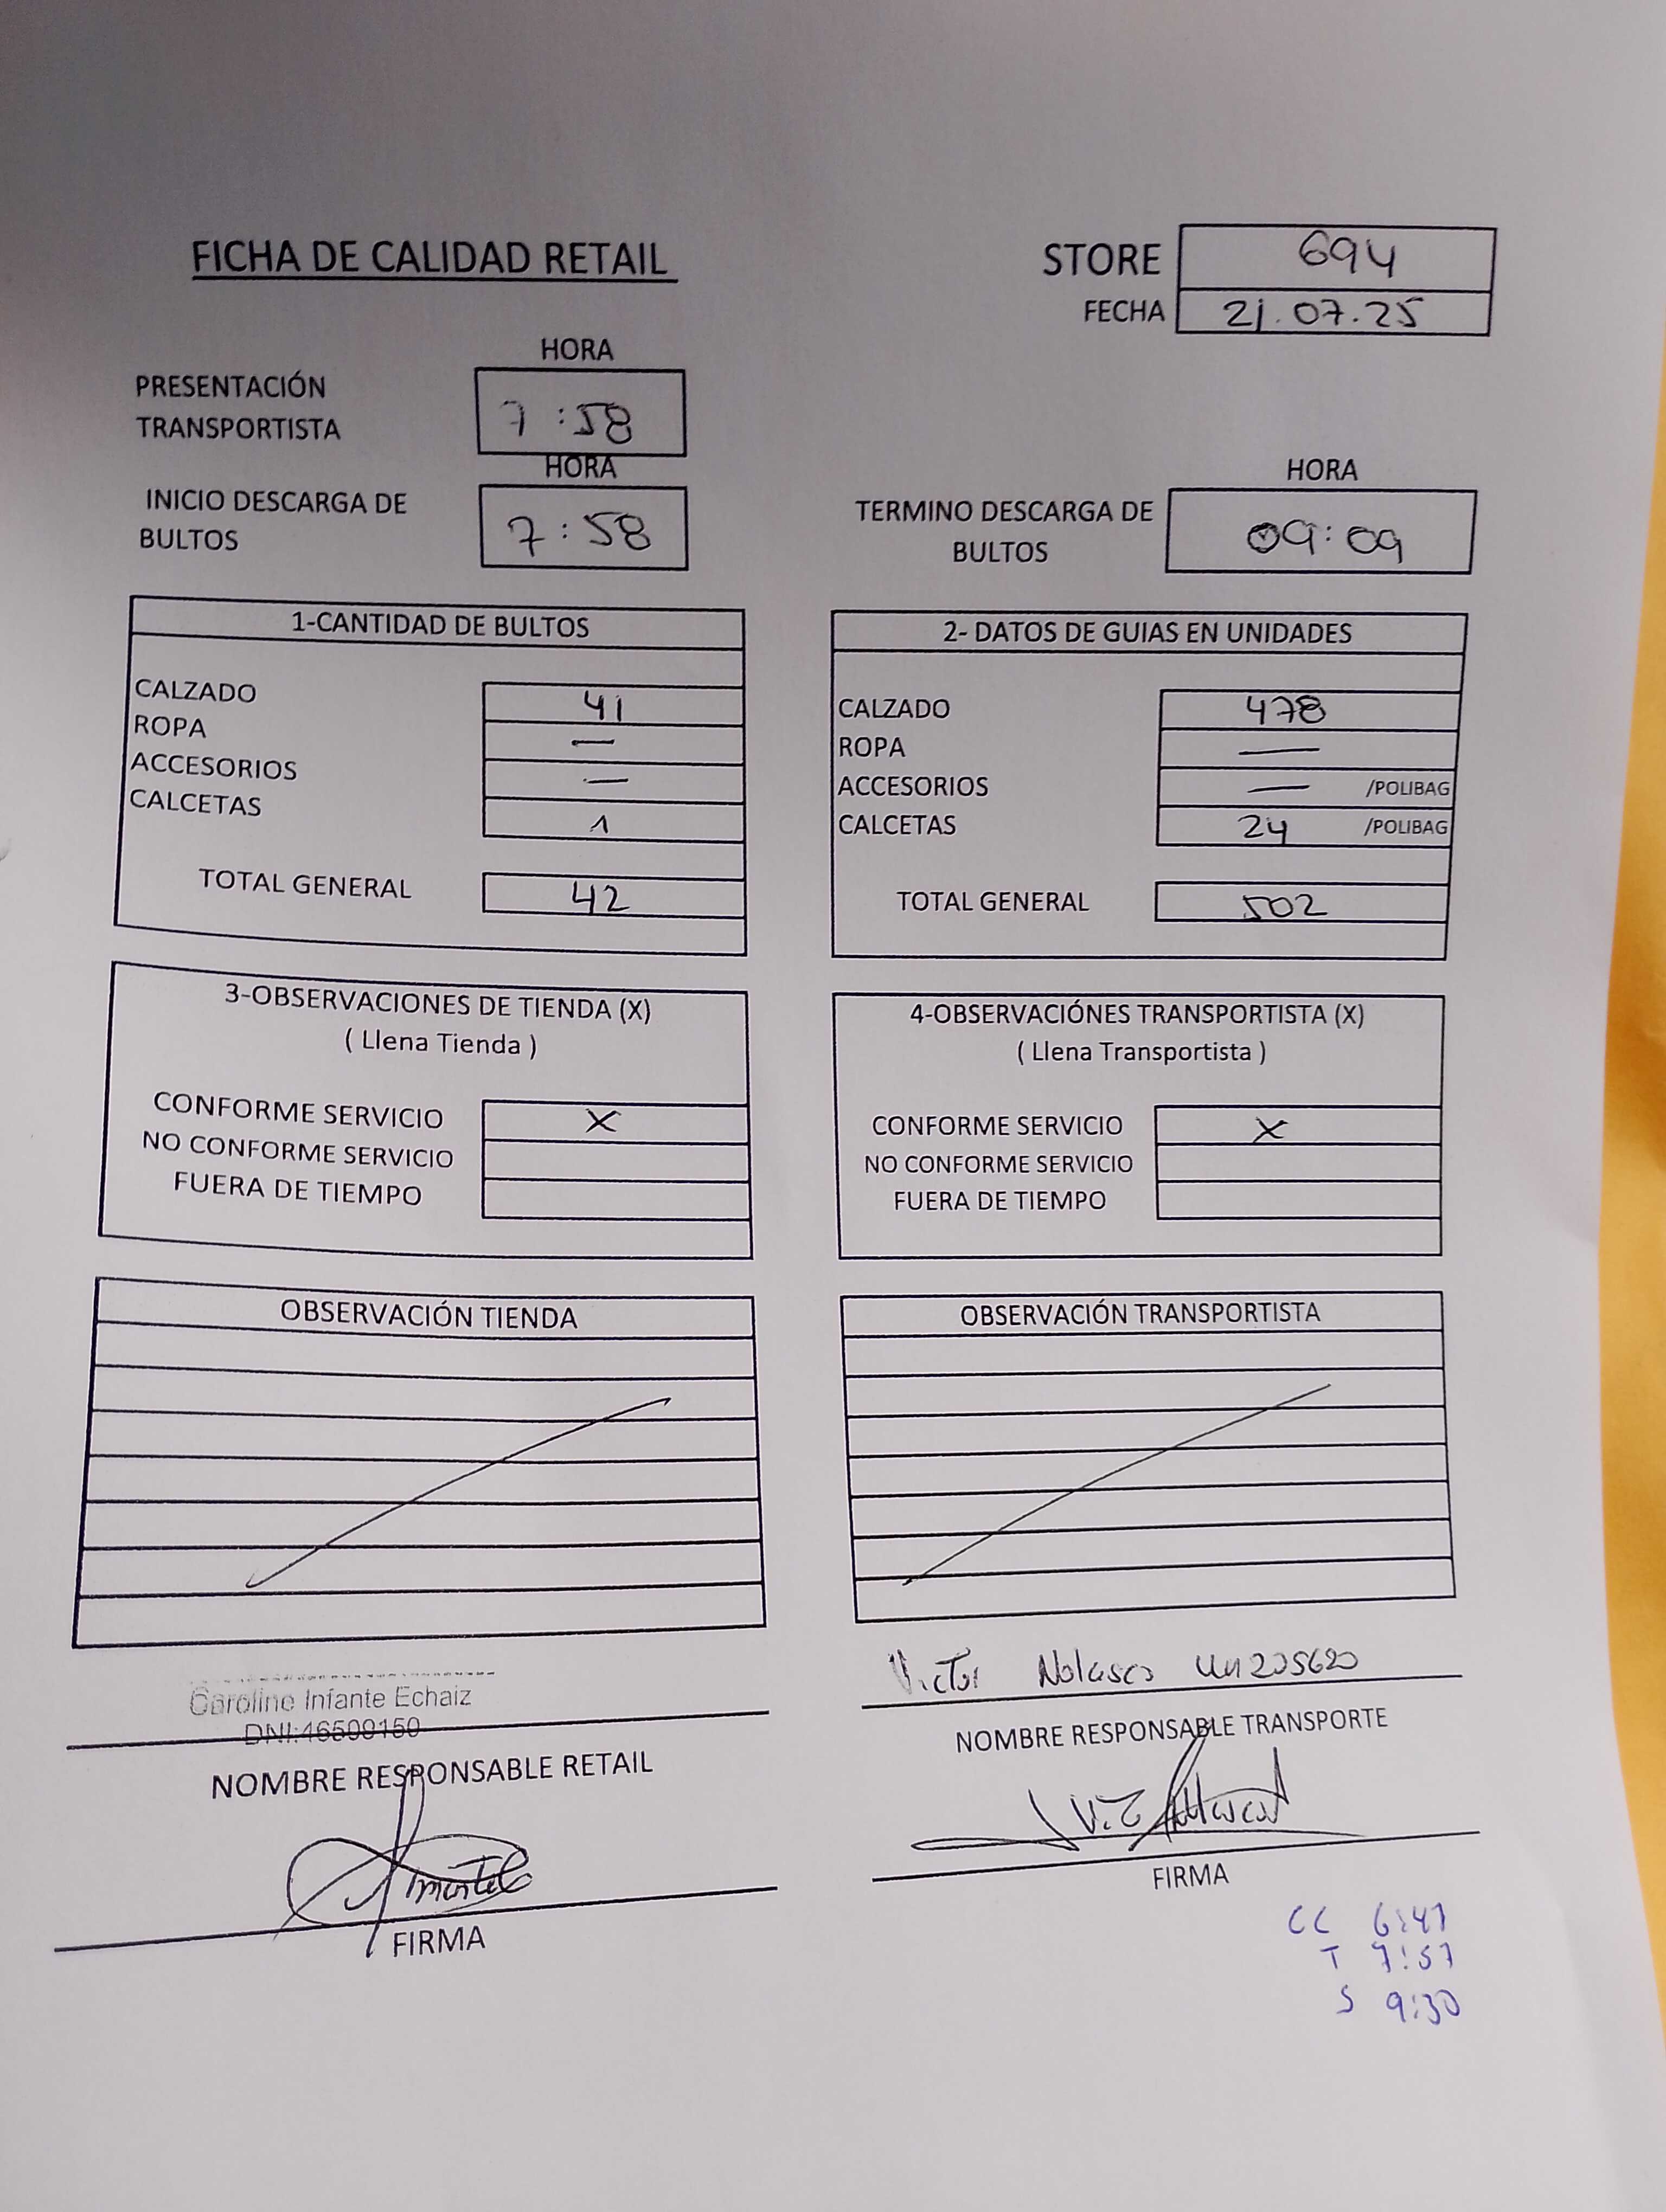 FICHA DE CALIDAD RETAIL
STORE 694
FECHA 21.07.25
HORA
PRESENTACIÓN
TRANSPORTISTA 7:58
HORA
INICIO DESCARGA DE
BULTOS 7:58
HORA
TERMINO DESCARGA DE
BULTOS 09:09
1-CANTIDAD DE BULTOS
CALZADO 41
ROPA —
ACCESORIOS —
CALCETAS 1
TOTAL GENERAL 42
2- DATOS DE GUIAS EN UNIDADES
CALZADO 478
ROPA —
ACCESORIOS — /POLIBAG
CALCETAS 24 /POLIBAG
TOTAL GENERAL 502
3-OBSERVACIONES DE TIENDA (X)
( Llena Tienda )
CONFORME SERVICIO X
NO CONFORME SERVICIO
FUERA DE TIEMPO
4-OBSERVACIÓNES TRANSPORTISTA (X)
( Llena Transportista )
CONFORME SERVICIO X
NO CONFORME SERVICIO
FUERA DE TIEMPO
OBSERVACIÓN TIENDA
OBSERVACIÓN TRANSPORTISTA
Caroline Infante Echaiz
DNI:46509150
NOMBRE RESPONSABLE RETAIL
FIRMA
Victor Nolasco
NOMBRE RESPONSABLE TRANSPORTE
FIRMA
CC 6:47
T 7:57
S 9:30